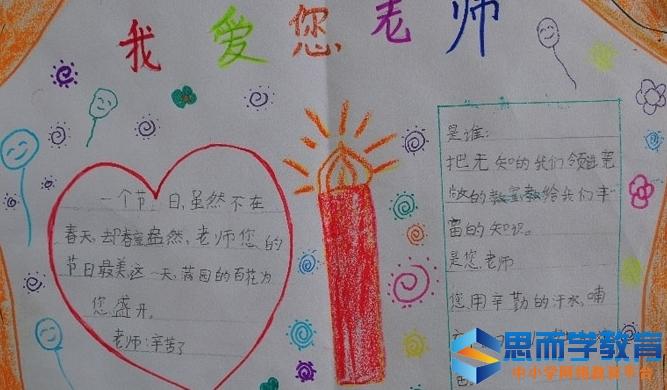 我爱您老师
一个节日,虽然不在
春天,却春意盎然,老师您的
节日最美这一天,校园的百花为
您盛开。
老师:辛苦了
是谁:
把无知的我们领进宽
的教室教给我们丰
富的知识。
是您老师
您用辛勤的汗水,哺
思而学教育
中小学网络教育平台